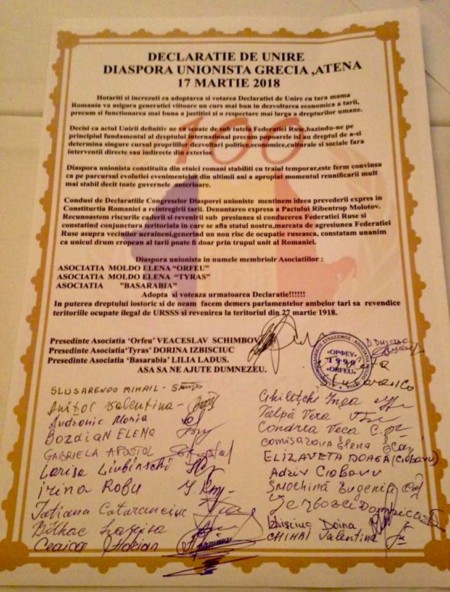 DECLARATIE DE UNIRE
DIASPORA UNIONISTA GRECIA ,ATENA
17 MARTIE 2018
100
Hotariti si increzuti ca adoptarea si votarea Declaratiei de Unire cu tara mama
Romania va asigura generatiei viitoare un curs mai bun in dezvoltarea economica a tarii,
precum si functionarea mai buna a justitiei si o respectare mai larga a drepturilor umane.
Deci cu actul Unirii definitiv ne va scoate de sub tutela Federatiei Ruse,bazindo-ne pe
principiul fundamental al dreptului International precum popoarele isi au dreptul de a-si
determina singure cursul propriilor dezvoltari politice,economice,culturale si sociale fara
interventii directe sau indirecte din exterior.
Diaspora unionista constituita din etnici romani stabiliti cu traiul temporar,este ferm convinsa
ca pe parcursul evolutiei evenimentelor din ultimii ani a apropiat momentul reunificarii mult
mai stabil decit toate guvernele anterioare.
Condusi de Declaratiile Congreselor Diasporei unioniste mentinem ideea prevederii expres in
Constitutia Romaniei a reintregirii tarii. Denuntarea expresa a Pactului Ribentrop Molotov.
Recunoastem riscurile caderii si revenirii sub presiunea si conducerea Federatiei Ruse si
constatind conjunctura teritoriala in care se afla statul nostru,marcata de agresiunea Federatiei
Ruse asupra vecinilor ucraineni,generind un nou risc de ocupatie ruseasca, constatam unanim
ca unicul drum european al tarii poate fi doar prin trupul unit al Romaniei.
Diaspora unionista in numele membrior Asociatiilor :
ASOCIATIA MOLDO ELENA "ORFEU"
ASOCIATIA MOLDO ELENA "TYRAS"
ASOCIATIA "BASARABIA"
Adopta si voteaza urmatoarea Declaratie!!!!!!
In puterea dreptului iostoric si de neam facem demers parlamentelor ambelor tari sa revendice
teritoriile ocupate ilegal de URSSS si revenirea la teritoriul din 27 martie 1918.
Presedinte Asociatia 'Orfeu' VEACESLAV SCHIMBOV
Presedinte Asociatia'Tyras' DORINA IZBISCIUC
Presedinte Asociatia 'Basarabia' LILIA LADUS.
ASA SA NE AJUTE DUMNEZEU.
SLUSARENCO MIHAIL
Valentina
Maria
BOZDIAN ELENA
GABRIELA APOSTOL
Larisa Liubinschi
Irina Robu
Tatiana
Larisa
Ceaica
Inga
Talpă Vera
Condrea Veca
Elena
ELIZAVETA DOAGA (CIOBANU)
CIOBANU
SMOCHINĂ Eugenia
Doina
CHIHAI Valentina